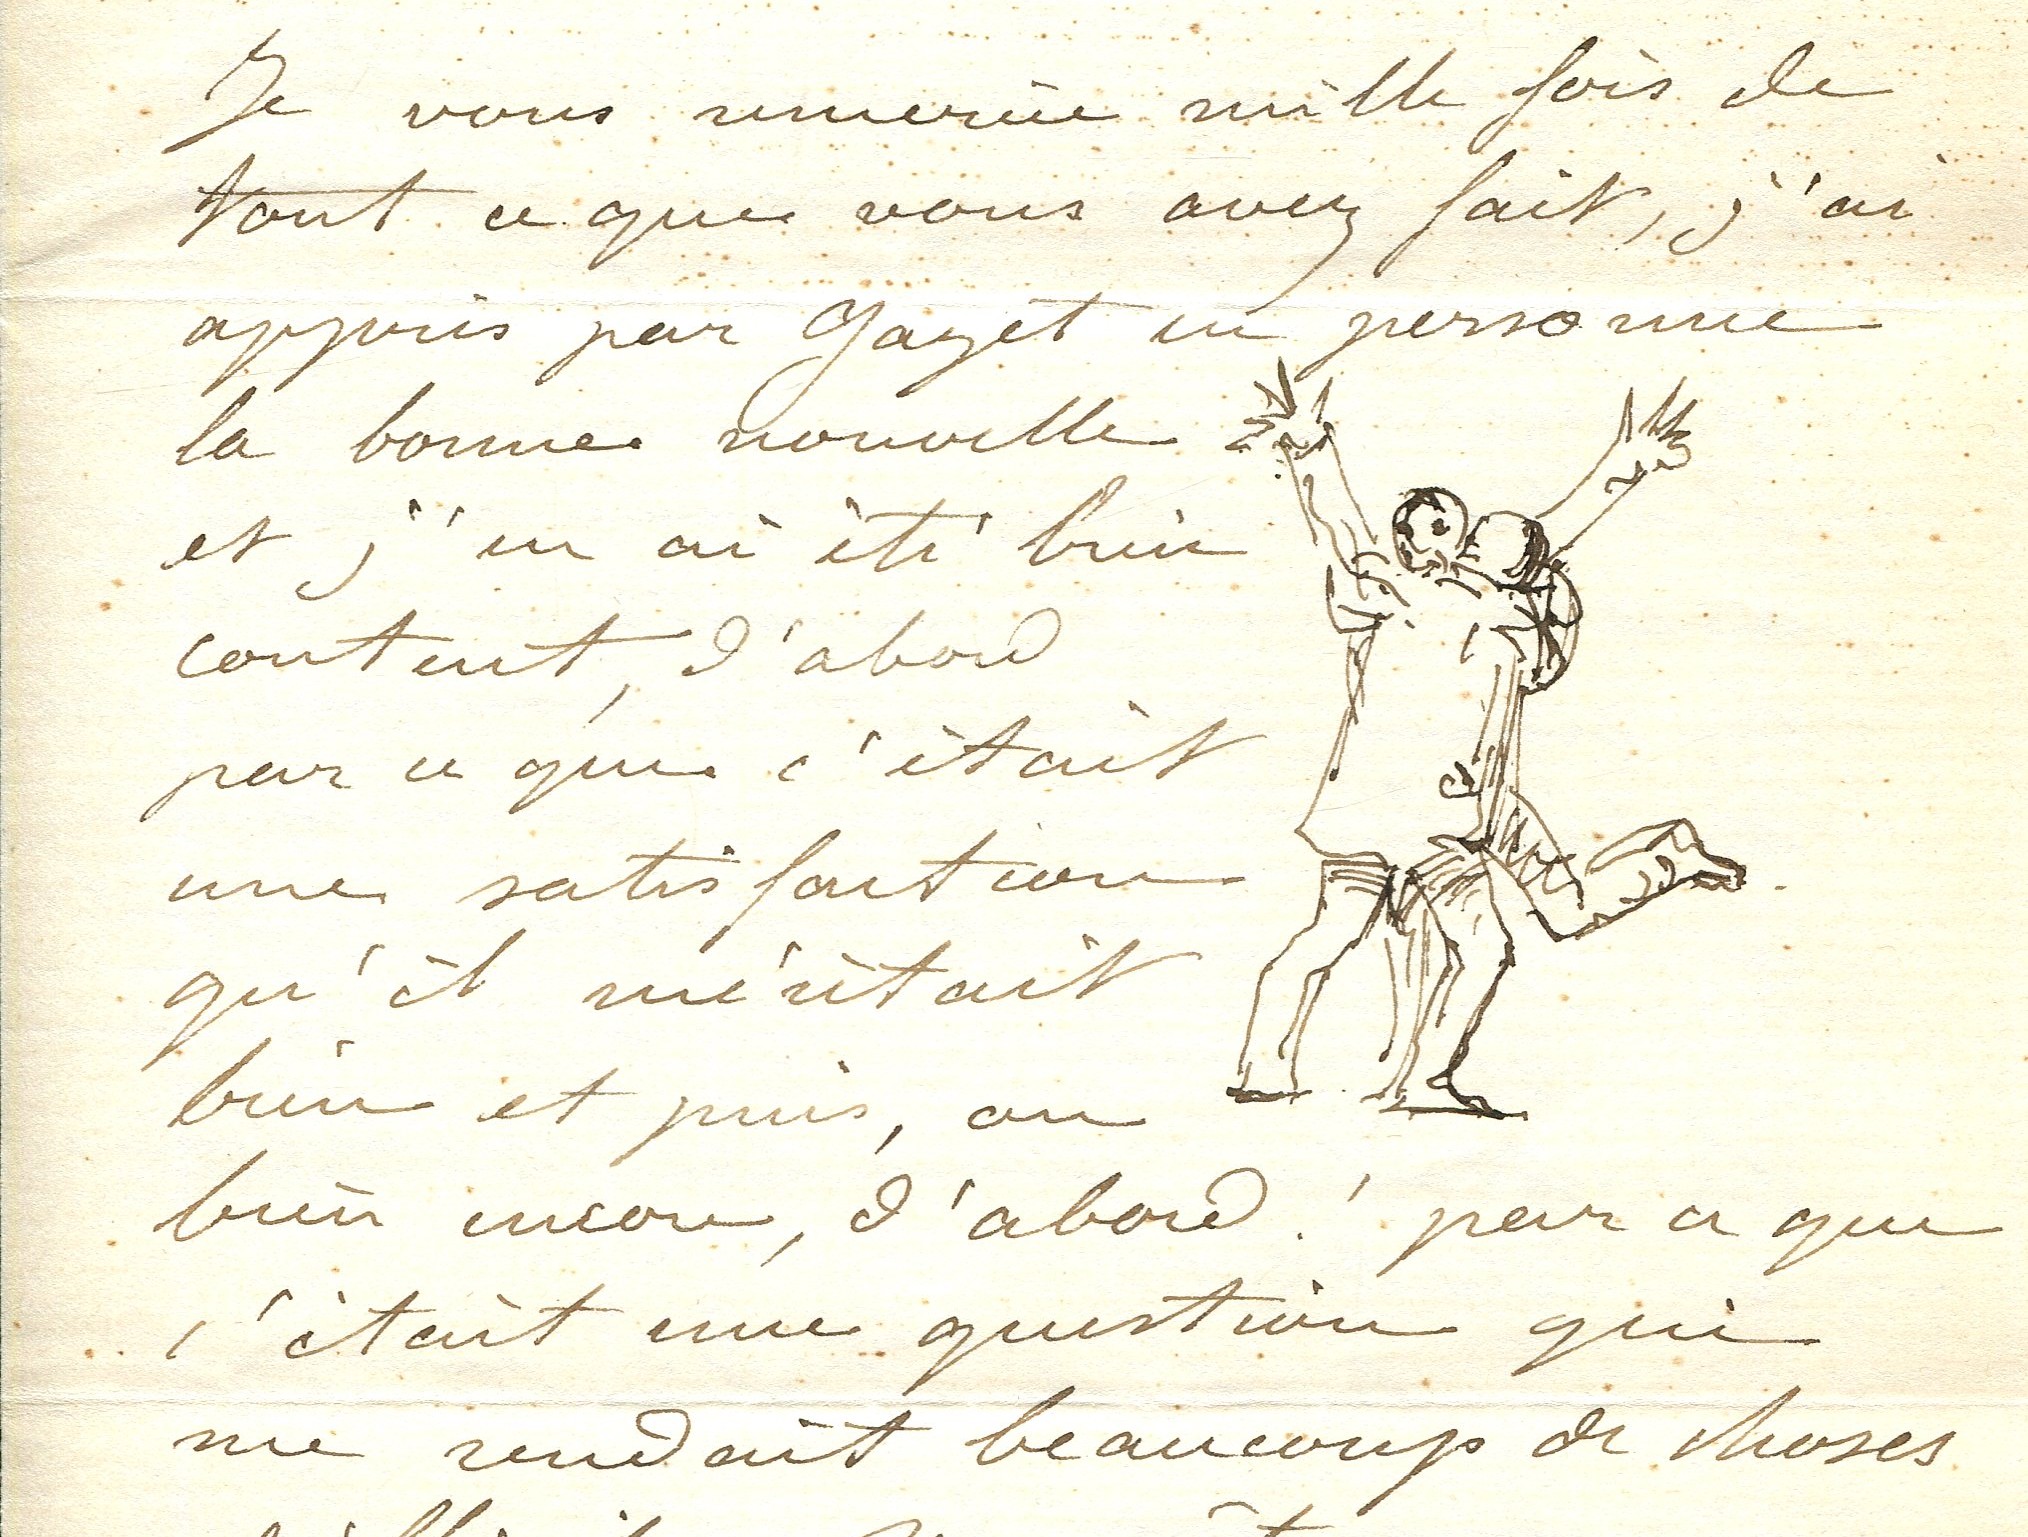 Je vous remercie mille fois de
tout ce que vous avez fait, j'ai
appris par Gazet en personne
la bonne nouvelle
et j'en ai été bien
content, d'abord
par ce que c'était
une satisfaction
qu'il méritait
bien et puis, ou
bien encore, d'abord ! par ce que
c'était une question qui
me rendait beaucoup de choses